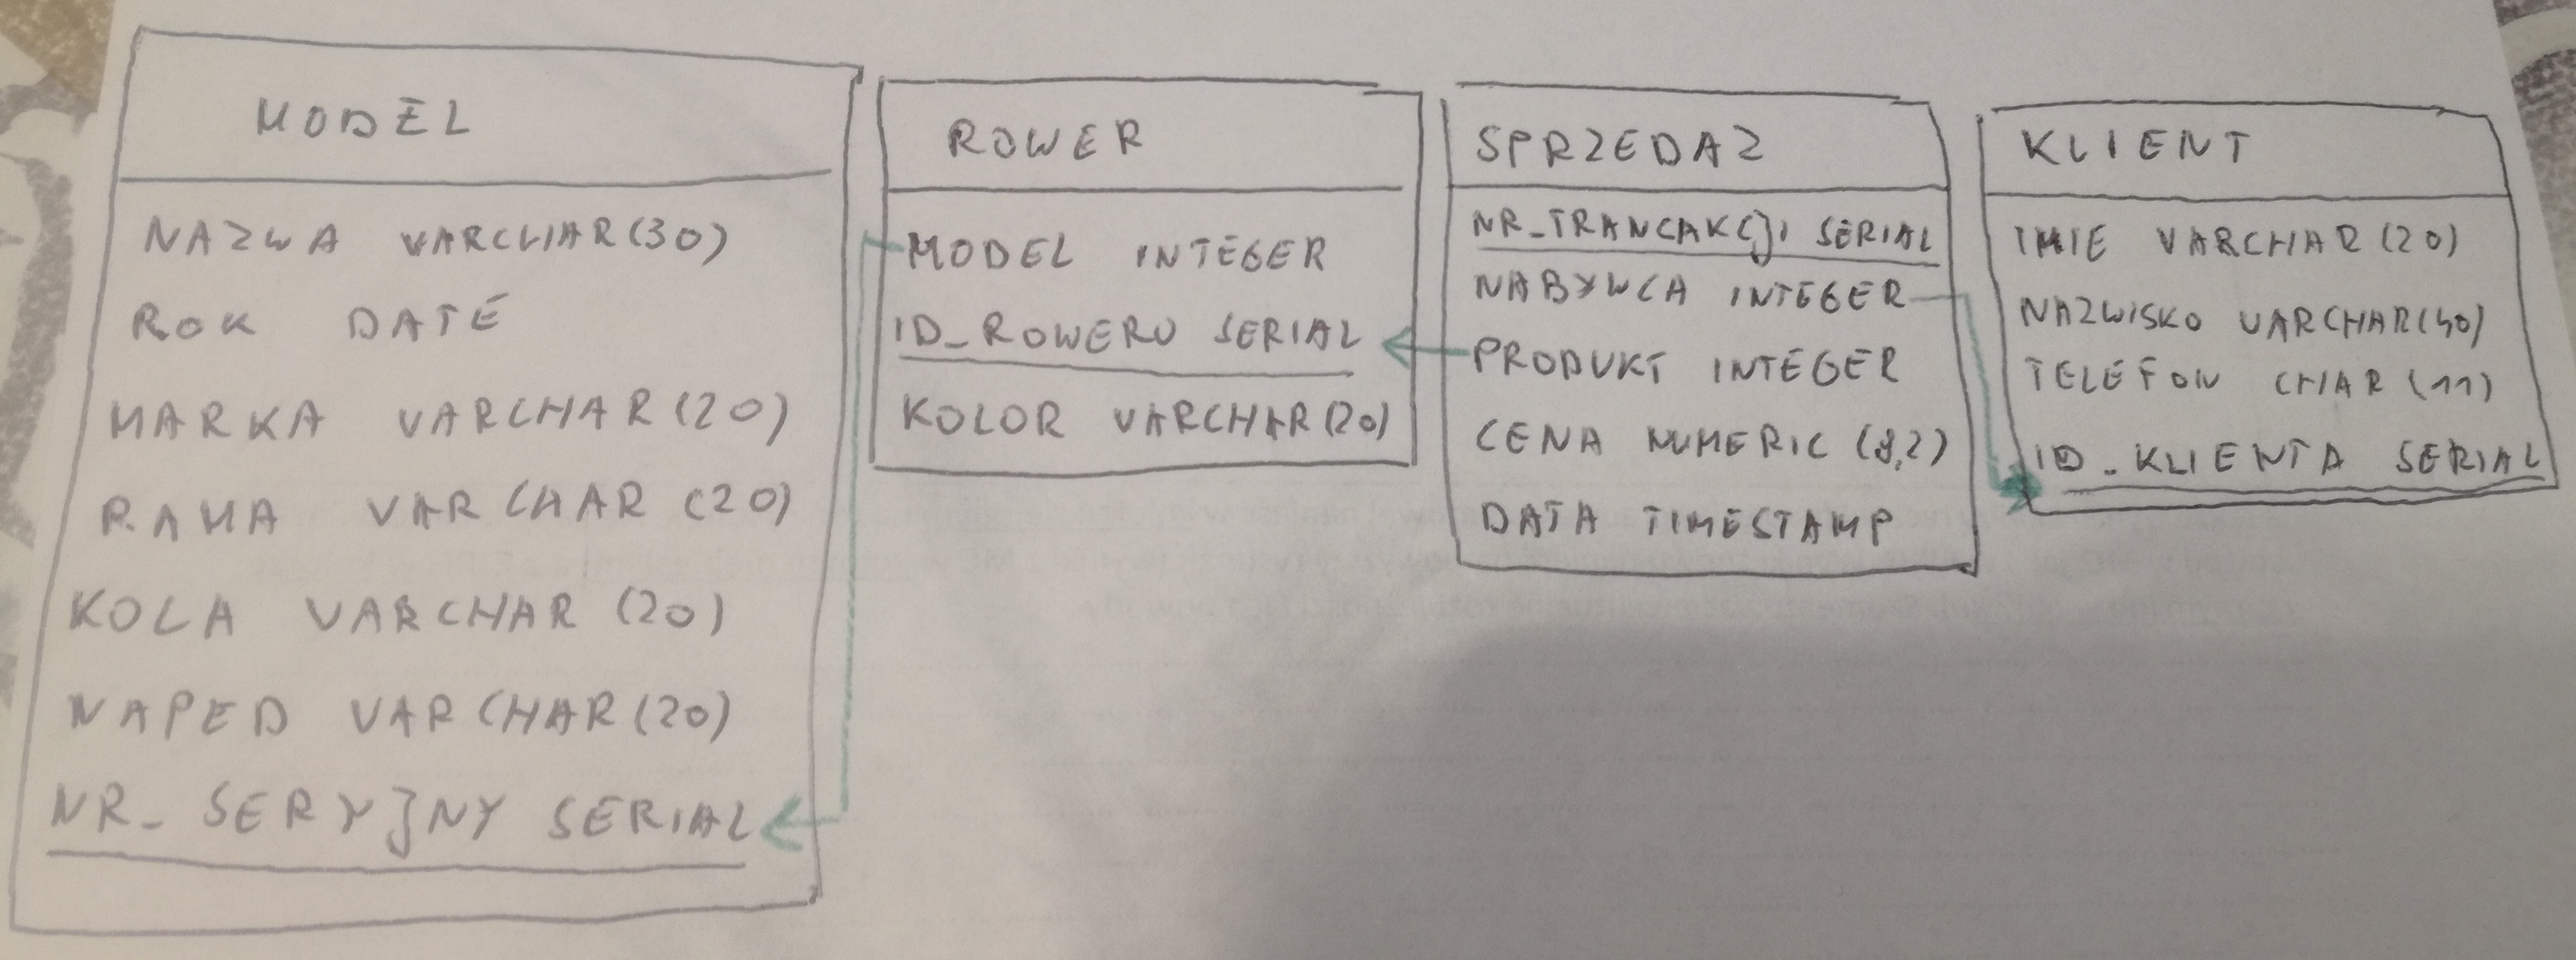 MODEL
NAZWA VARCHAR(30)
ROK DATE
MARKA VARCHAR(20)
RAMA VARCHAR(20)
KOLA VARCHAR(20)
NAPED VARCHAR(20)
NR_SERYJNY SERIAL
ROWER
MODEL INTEGER
ID_ROWERU SERIAL
KOLOR VARCHAR(20)
SPRZEDAZ
NR_TRANCAKCJI SERIAL
NABYWCA INTEGER
PRODUKT INTEGER
CENA NUMERIC (8,2)
DATA TIMESTAMP
KLIENT
IMIE VARCHAR(20)
NAZWISKO VARCHAR(40)
TELEFON CHAR(11)
ID_KLIENTA SERIAL